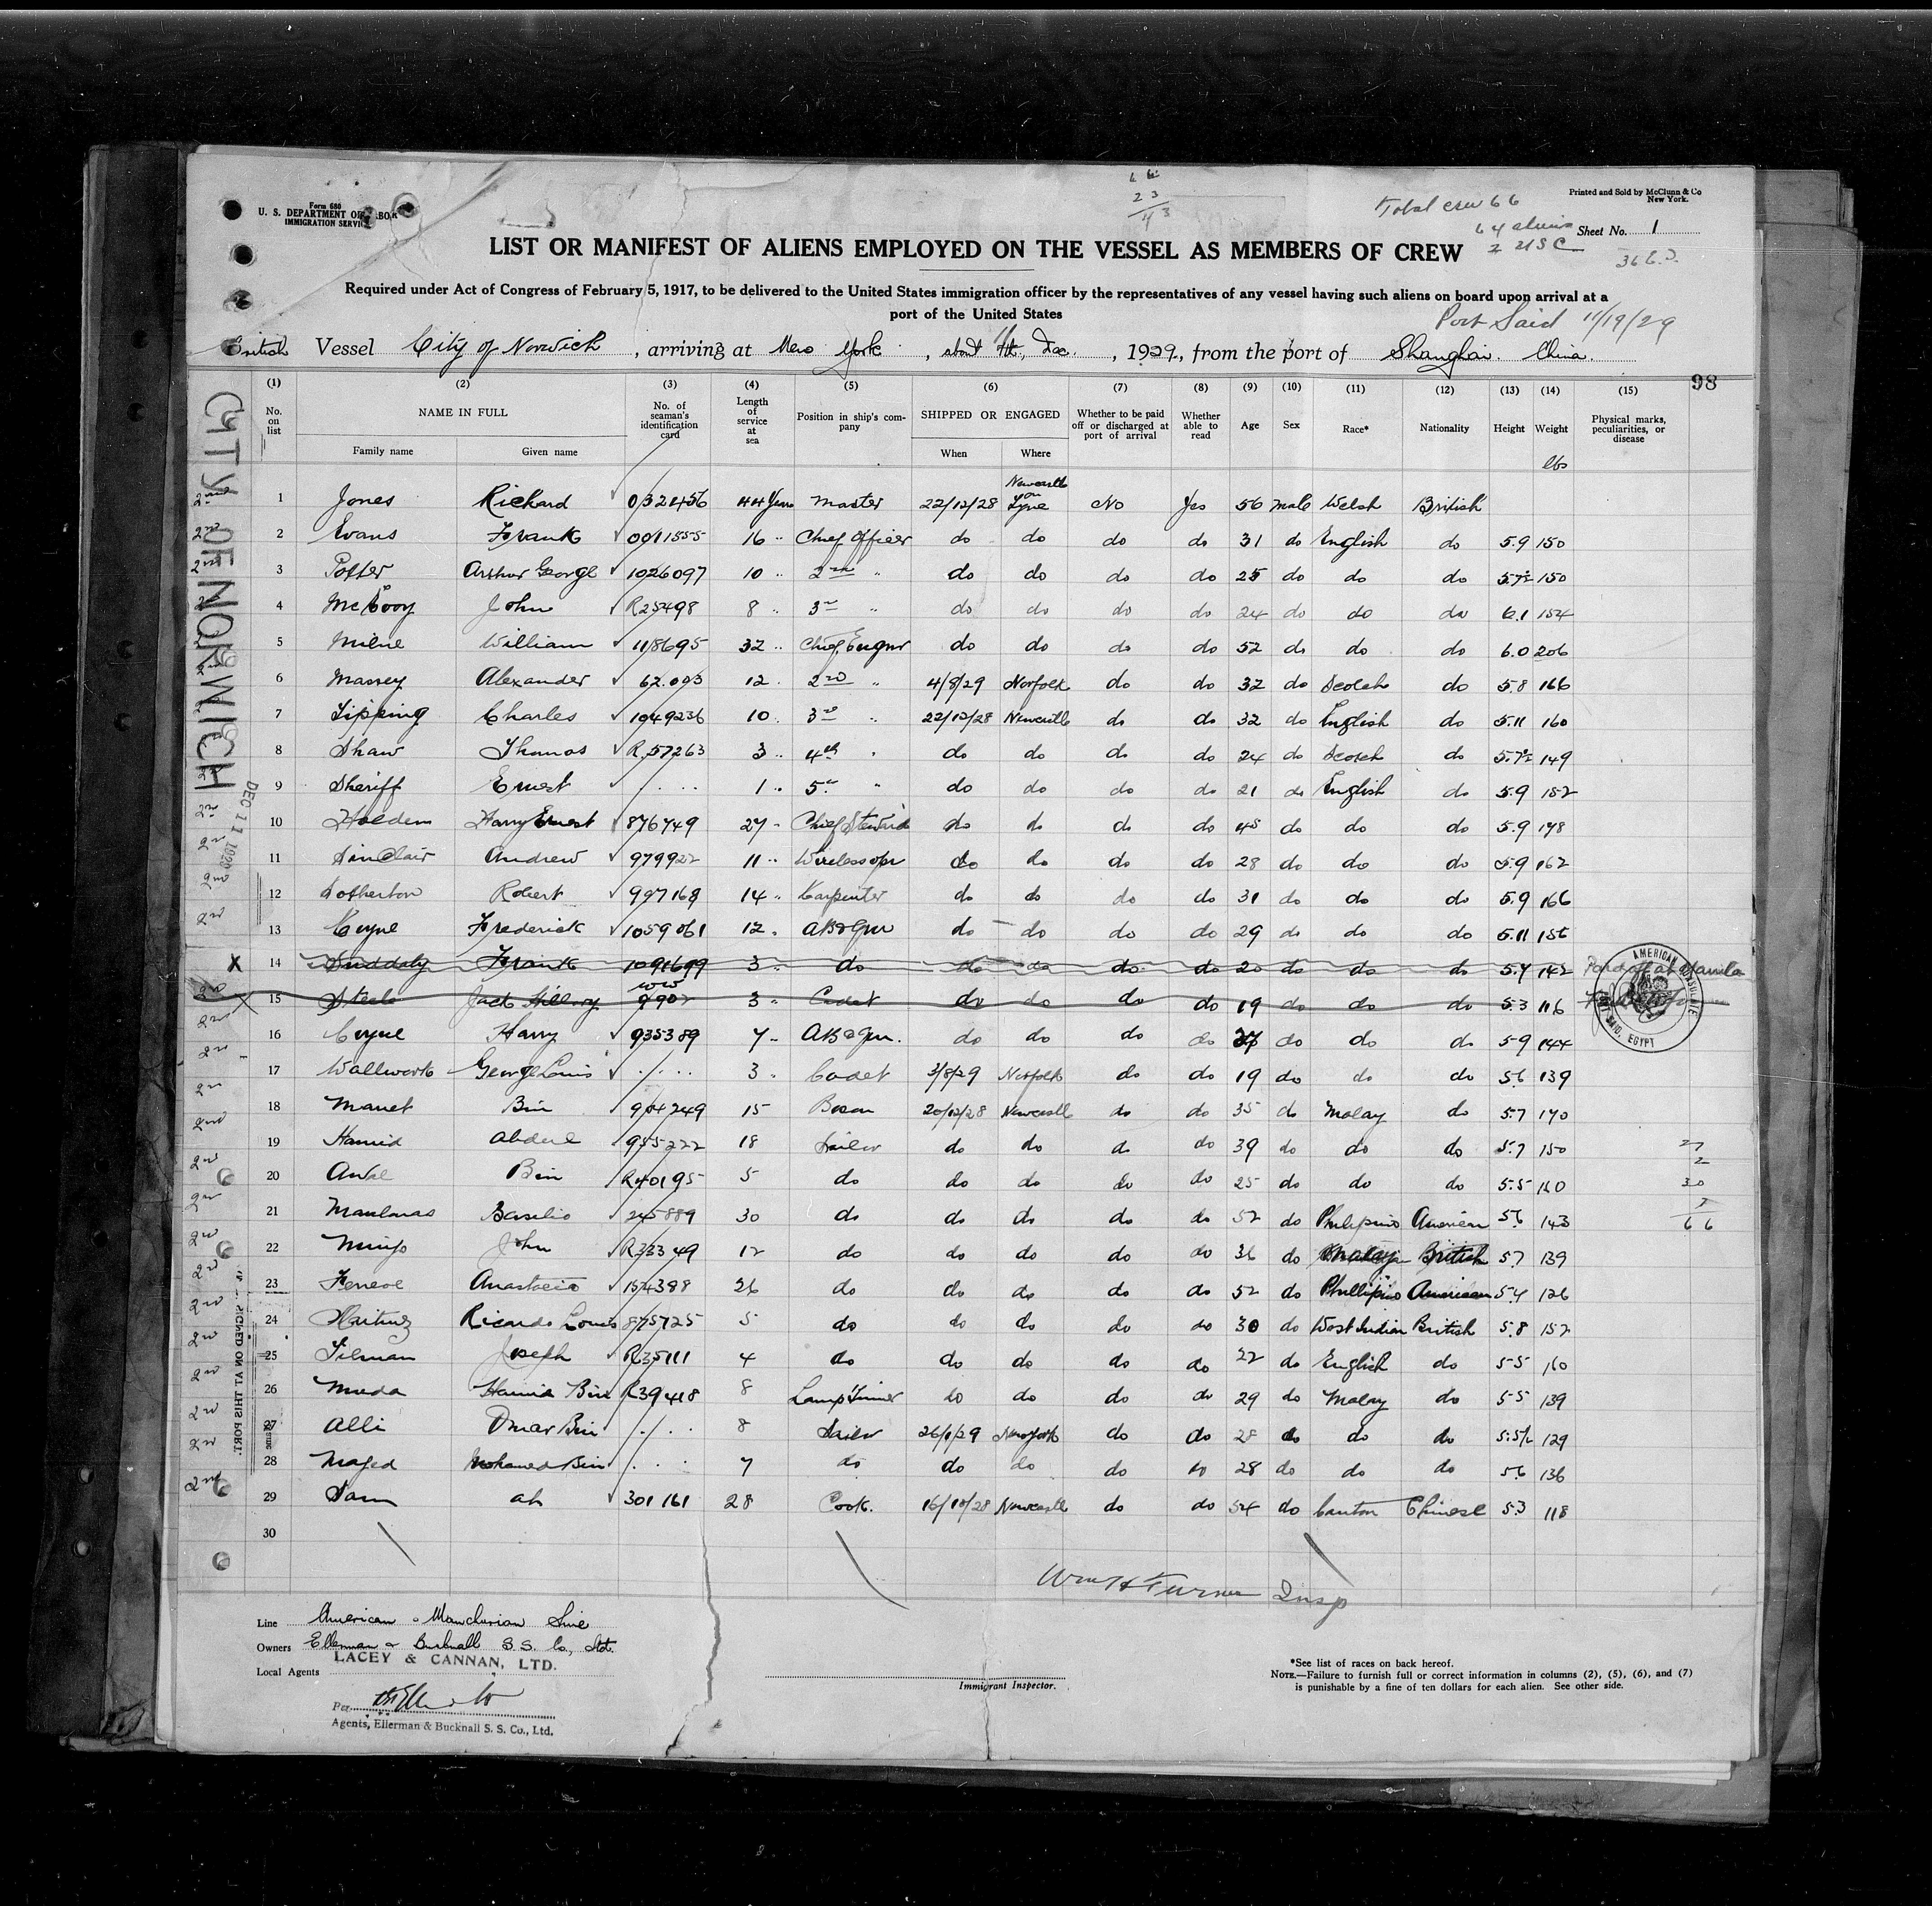 Form 680
U. S. DEPARTMENT OF LABOR
IMMIGRATION SERVICE
66
23
43
Printed and Sold by McClunn & Co
New York.
Total crew 66
64 aliens
2 USC
Sheet No. 1
LIST OR MANIFEST OF ALIENS EMPLOYED ON THE VESSEL AS MEMBERS OF CREW
Required under Act of Congress of February 5, 1917, to be delivered to the United States immigration officer by the representatives of any vessel having such aliens on board upon arrival at a
port of the United States
Port Said 11/19/29
British Vessel City of Norwich, arriving at New York, about Dec., 1929, from the port of Shanghai. China.
98
(1) (2) (3) (4) (5) (6) (7) (8) (9) (10) (11) (12) (13) (14) (15)
No. on list
NAME IN FULL
Family name
Given name
No. of seaman's identification card
Length of service at sea
Position in ship's company
SHIPPED OR ENGAGED
When
Where
Whether to be paid off or discharged at port of arrival
Whether able to read
Age
Sex
Race*
Nationality
Height
Weight
lbs
Physical marks, peculiarities, or disease
CITY OF NORWICH
DEC 11 1929
1 Jones Richard 0321456 44 Years Master 22/12/28 Newcastle on Tyne No Yes 56 Male Welsh British
2 Evans Frank 0011555 16 " Chief Officer do do do do 31 do English do 5.9 150
3 Potter Arthur George 1026097 10 " 2nd " do do do do 25 do do do 5.7½ 150
4 John R25498 8 " 3rd " do do do do 24 do do do 6.1 154
5 Milne William 118695 32 " Chief Engnr do do do do 52 do do do 6.0 206
6 Massey Alexander 62.003 12 " 2nd " 4/8/29 Norfolk do do 32 do Scotch do 5.8 166
7 Tipping Charles 1049236 10 " 3rd " 22/12/28 Newcastle do do 32 do English do 5.11 160
8 Shaw Thomas R.57263 3 " 4th " do do do do 24 do Scotch do 5.7½ 149
9 Sheriff Ernest 1 " 5th " do do do do 21 do English do 5.9 152
10 Holden Harry Ernest 876749 27 " Chief Steward do do do do 45 do do do 5.9 178
11 Sinclair Andrew 979922 11 " Wireless opr do do do do 28 do do do 5.9 162
12 Sotherton Robert 997168 14 " Carpenter do do do do 31 do do do 5.9 166
13 Coyne Frederick 1059061 12 " do do do do 29 do do do 5.11 156
X 14 Frank 1091699 3 " do do do do do 20 do do do 5.4 142 Paid off at Manila
15 Steele Jack Hillary 9902 3 " Cadet do do do do 19 do do do 5.3 116
AMERICAN CONSULATE PORT SAID, EGYPT
16 Coyne Harry 935389 7 " do do do do do do do 5.9 144
17 Wallwork George Louis 3 " Cadet 3/8/29 Norfolk do do 19 do do do 5.6 139
18 Manet Bin 904249 15 Bosun 20/12/28 Newcastle do do 35 do Malay do 5.7 170
19 Hamid Abdul 955222 18 Sailor do do do do 39 do do do 5.7 150
20 Bin R40195 5 do do do do do 25 do do do 5.5
21 Basilio 245889 30 do do do do do 52 do Philipino American 5.6 143
22 John R33349 12 do do do do do 36 do British 5.7 139
23 Anastacio 154388 26 do do do do do 52 do Phillipino American 5.4 126
24 Ricardo Louis 875725 5 do do do do do 30 do West Indian British 5.8 152
25 Tilman Joseph R35111 4 do do do do do 22 do English do 5.5 160
26 Muda Hamid Bin R39418 8 Lamp Trimmer do do do do 29 do Malay do 5.5 139
27 Alli Omar Bin 8 Sailor do do 28 do do do 5.5½ 129
28 Majed Mohamed Bin 7 do do do do do 28 do do do 5.6 136
29 Sam ah 301161 28 Cook. 16/12/28 Newcastle do do 54 do Canton Chinese 5.3 118
30
SIGNED ON AT THIS PORT.
66
Wm H Turner Insp
Line American & Manchurian Line
Owners Ellerman & Bucknall S.S. Co., Ltd.
LACEY & CANNAN, LTD.
Local Agents
Per
Agents, Ellerman & Bucknall S. S. Co., Ltd.
Immigrant Inspector.
*See list of races on back hereof.
NOTE.—Failure to furnish full or correct information in columns (2), (5), (6), and (7)
is punishable by a fine of ten dollars for each alien. See other side.